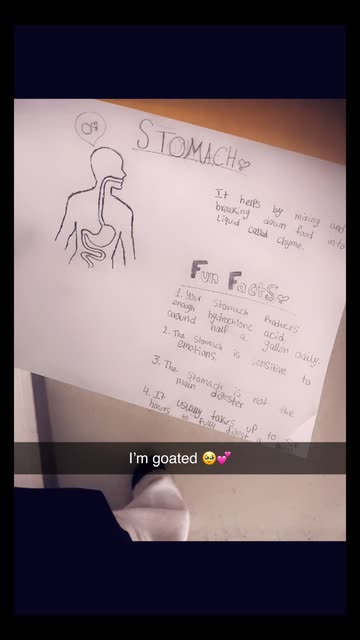 STOMACH
It helps by mixing and
breaking down food into
Liquid called chyme.
FUN FACTS
1. Your stomach produces
enough hydrochloric acid,
around half a gallon daily.
2. The stomach is sensitive to
emotions.
3. The stomach is not the
main digester
4. It usually takes up to
hours to fully digest a
I'm goated 🥹💕